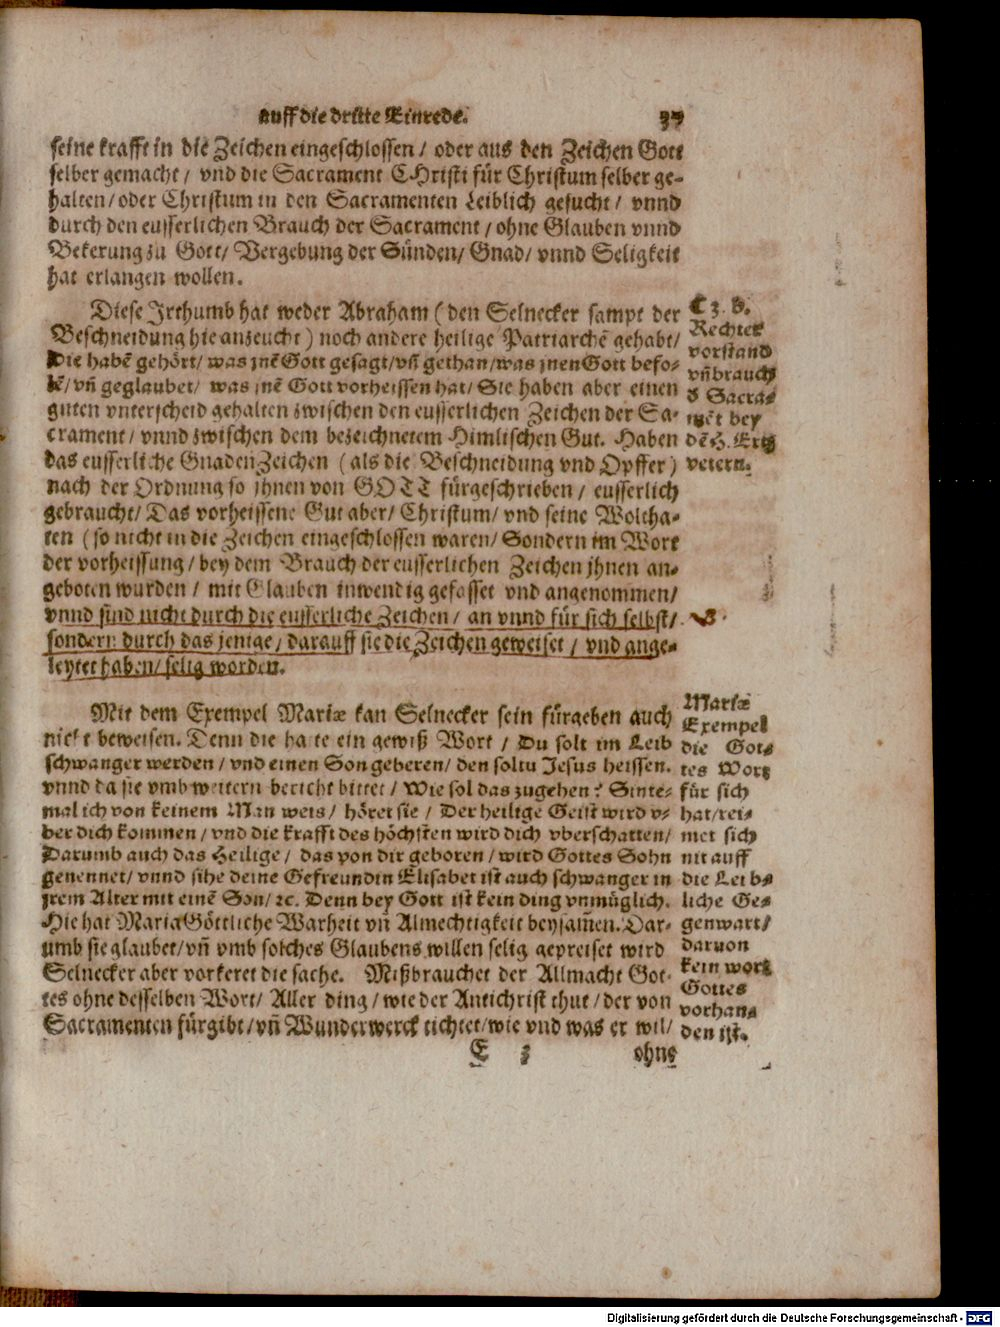 auff die dritte Einrede. 37
seine krafft in die Zeichen eingeschlossen / oder aus den Zeichen Gott
selber gemacht / vnd die Sacrament CHristi für Christum selber ge-
halten / oder Christum in den Sacramenten Leiblich gesucht / vnnd
durch den eusserlichen Brauch der Sacrament / ohne Glauben vnnd
Bekerung zu Gott / Vergebung der Sünden / Gnad / vnnd Seligkeit
hat erlangen wollen.
Diese Irthumb hat weder Abraham (den Selnecker sampt der
Beschneidung hie anzeucht) noch andere heilige Patriarchẽ gehabt /
Die habẽ gehört / was jnẽ Gott gesagt / vñ gethan / was jnen Gott befo-
lẽ / vñ geglaubet / was jnẽ Gott vorheissen hat / Sie haben aber einen
guten vnterscheid gehalten zwischen den eusserlichen Zeichen der Sa-
crament / vnnd zwischen dem bezeichnetem Himlischen Gut. Haben
das eusserliche GnadenZeichen (als die Beschneidung vnd Opffer)
nach der Ordnung so jhnen von GOTT fürgeschrieben / eusserlich
gebraucht / Das vorheissene Gut aber / Christum / vnd seine Woltha-
ten (so nicht in die Zeichen eingeschlossen waren / Sondern im Wort
der vorheissung / bey dem Brauch der eusserlichen Zeichen jhnen an-
geboten wurden / mit Glauben inwendig gefasset vnd angenommen /
vnnd sind nicht durch die eusserliche Zeichen / an vnnd für sich selbst /
sondern durch das jenige / darauff sie die Zeichen geweiset / vnd ange-
leytet haben / selig worden.
C 3. b.
Rechter
vorstand
vñ brauch
d Sacra-
mẽt bey
dẽ H. Ertz
vetern.
NB.
Mit dem Exempel Mariæ kan Selnecker sein fürgeben auch
nicht beweisen. Denn die hatte ein gewiß Wort / Du solt im Leib
schwanger werden / vnd einen Son geberen / den soltu Jesus heissen.
vnnd da sie vmb weitern bericht bittet / Wie sol das zugehen? Sinte-
mal ich von keinem Man weis / höret sie / Der heilige Geist wird v-
ber dich kommen / vnd die krafft des höchsten wird dich vberschatten /
Darumb auch das Heilige / das von dir geboren / wird Gottes Sohn
genennet / vnnd sihe deine Gefreundin Elisabet ist auch schwanger in
jrem Alter mit einẽ Son / ꝛc. Denn bey Gott ist kein ding vnmüglich.
Hie hat Maria Göttliche Warheit vñ Almechtigkeit beysam̃en. Dar-
umb sie glaubet / vñ vmb solches Glaubens willen selig gepreiset wird
Selnecker aber vorkeret die sache. Mißbrauchet der Allmacht Got-
tes ohne desselben Wort / Aller ding / wie der Antichrist thut / der von
Sacramenten fürgibt / vñ Wunderwerck tichtet / wie vnd was er wil /
Mariæ
Exempel
die Got-
tes Wort
für sich
hat / rei-
met sich
nit auff
die Leib-
liche Ge-
genwart /
daruon
kein wort
Gottes
vorhan-
den ist.
E 3 ohne
Digitalisierung gefördert durch die Deutsche Forschungsgemeinschaft - DFG